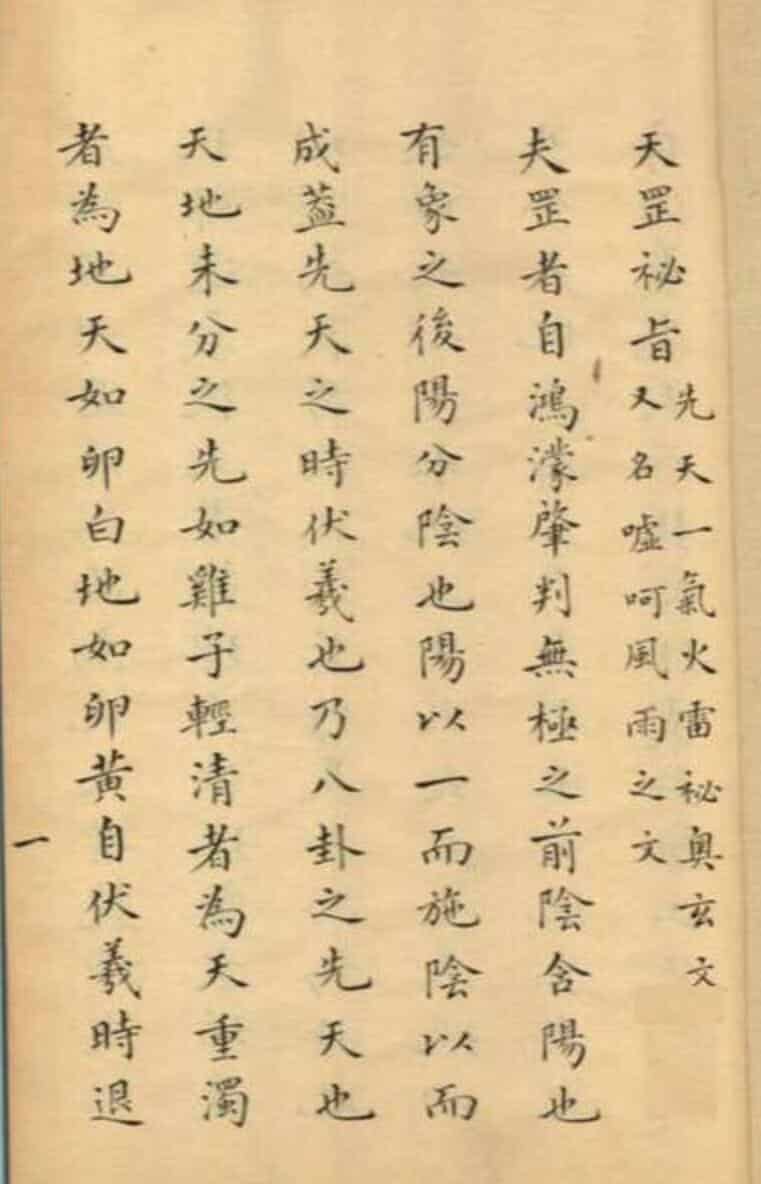 天罡祕旨
先天一氣火雷祕奥玄文
又名嘘呵風雨之文
夫罡者自鴻濛肇判無極之前陰含陽也
有象之後陽分陰也陽以一而施陰以而
成葢先天之時伏羲也乃八卦之先天也
天地未分之先如雞子輕清者為天重濁
者為地天如卵白地如卵黃自伏羲時退
一